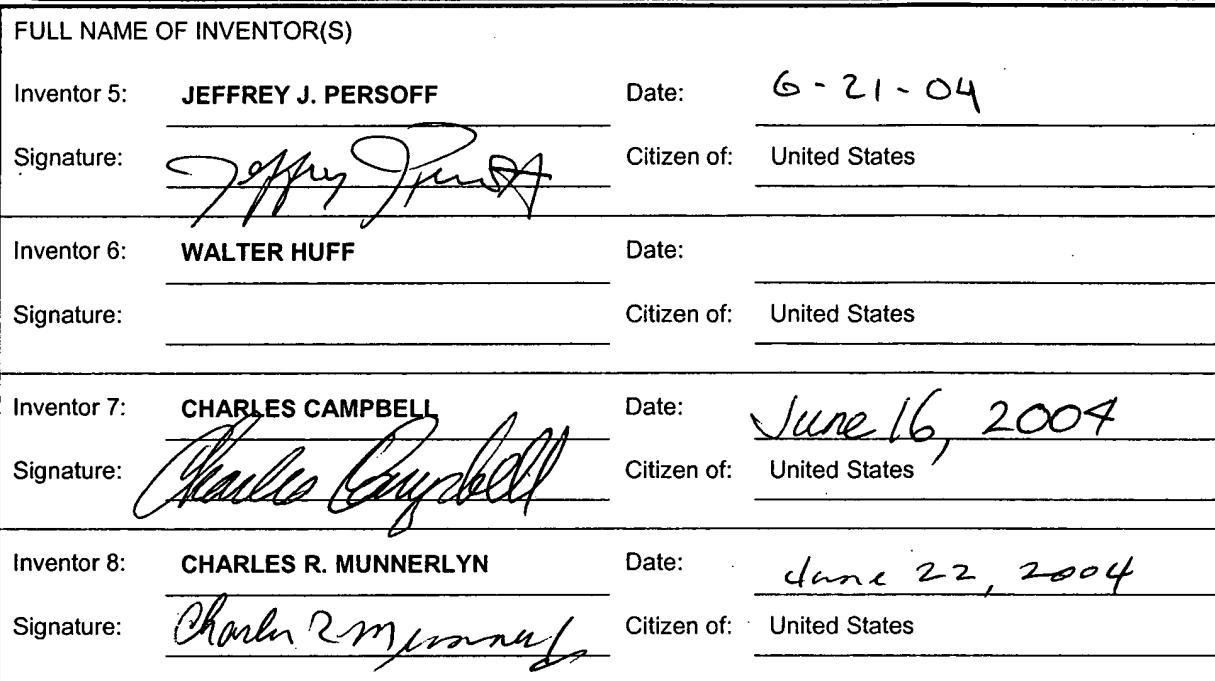 FULL NAME OF INVENTOR(S)
Inventor 5: JEFFREY J. PERSOFF Date: 6-21-04
Signature: Jeffrey Persoff Citizen of: United States
Inventor 6: WALTER HUFF Date:
Signature: Citizen of: United States
Inventor 7: CHARLES CAMPBELL Date: June 16, 2004
Signature: Charles Campbell Citizen of: United States
Inventor 8: CHARLES R. MUNNERLYN Date: June 22, 2004
Signature: Charles R Munnerlyn Citizen of: United States